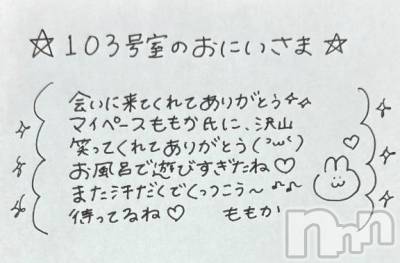 ☆103号室のおにいさま☆
会いに来てくれてありがとう✧✧
マイペースももか氏に、沢山
笑ってくれてありがとう(つω`)
お風呂で遊びすぎたね♡
また汗だくでくっつこう〜♪♪
待ってるね♡ ももか
nnn